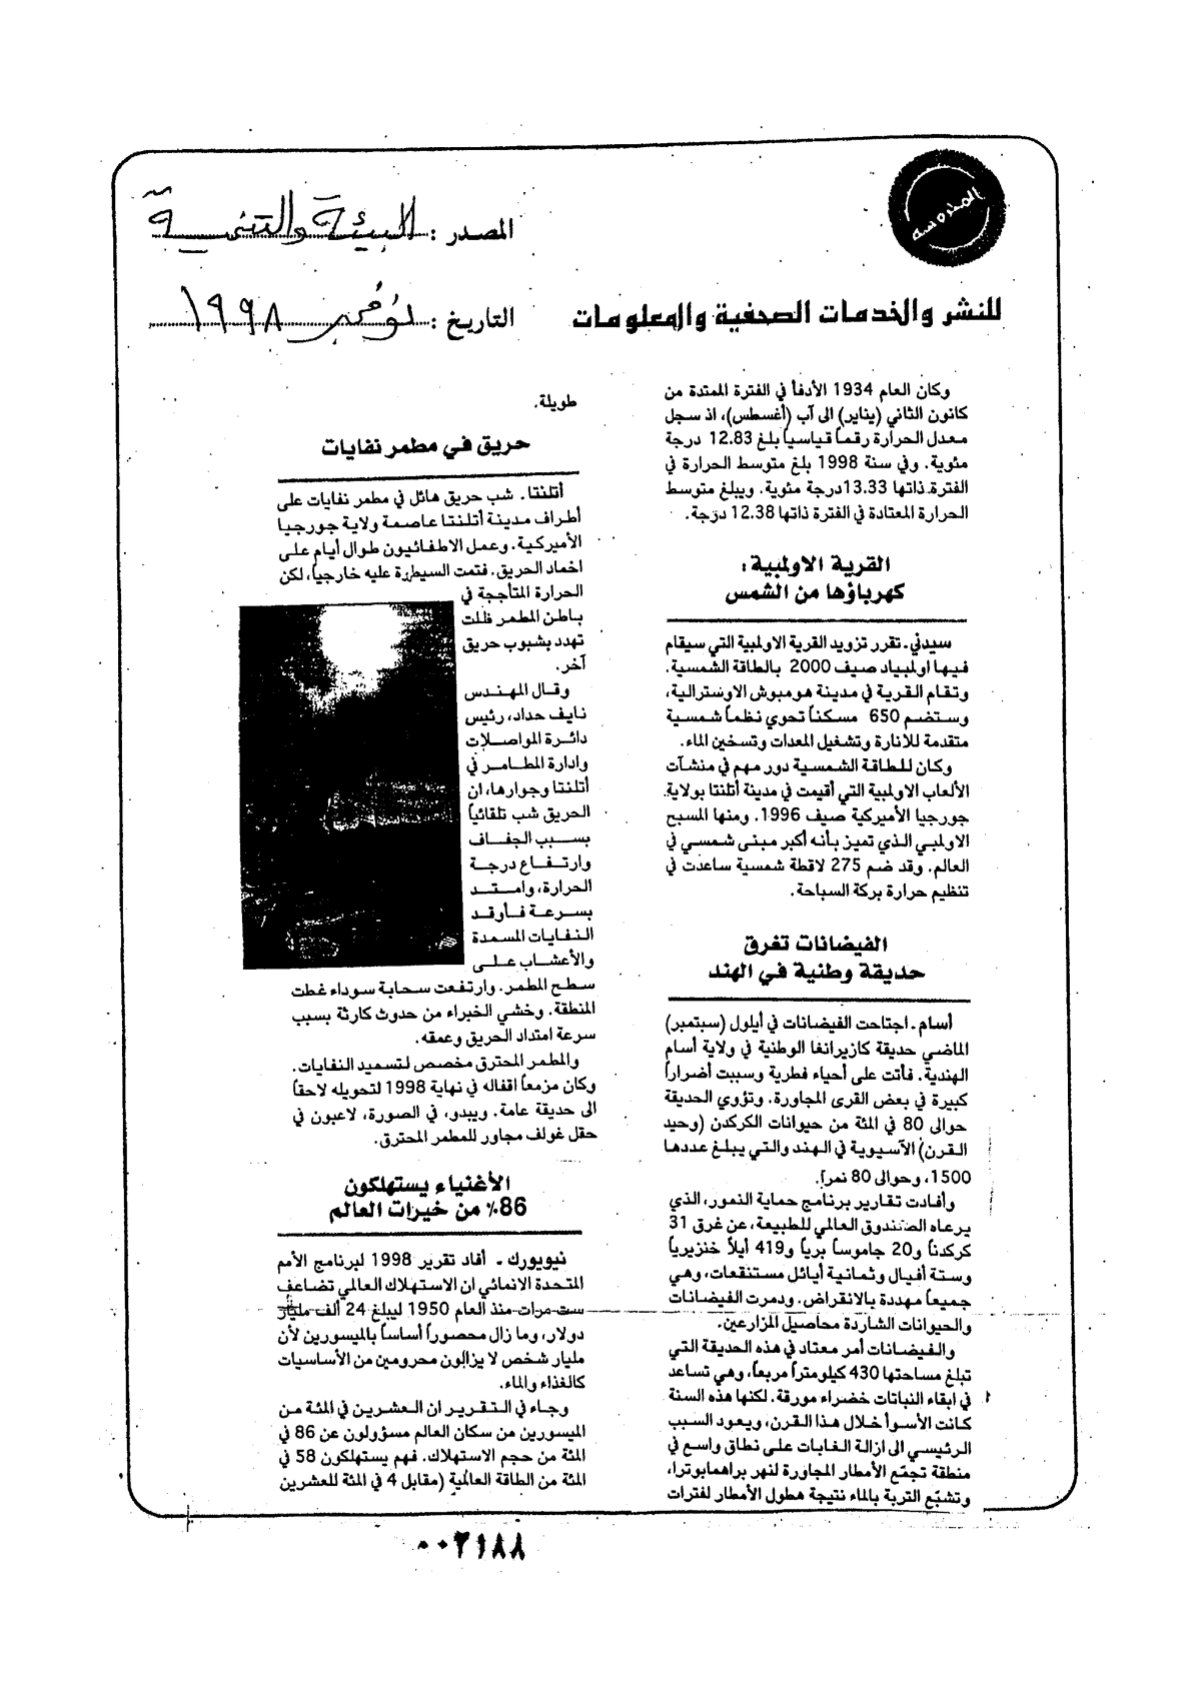 المدروسة
المصدر : البيئة والتنمية
للنشر والخدمات الصحفية والمعلومات
التاريخ : نوفمبر ١٩٩٨
وكان العام 1934 الأدفأ في الفترة الممتدة من
كانون الثاني (يناير) الى آب (أغسطس)، اذ سجل
معدل الحرارة رقماً قياسياً بلغ 12.83 درجة
مئوية. وفي سنة 1998 بلغ متوسط الحرارة في
الفترة ذاتها 13.33 درجة مئوية. ويبلغ متوسط
الحرارة المعتادة في الفترة ذاتها 12.38 درجة.
القرية الاولمبية :
كهرباؤها من الشمس
سيدني. تقرر تزويد القرية الاولمبية التي سيقام
فيها اولمبياد صيف 2000 بالطاقة الشمسية.
وتقام القرية في مدينة هومبوش الاوسترالية،
وستضم 650 مسكناً تحوي نظماً شمسية
متقدمة للانارة وتشغيل المعدات وتسخين الماء.
وكان للطاقة الشمسية دور مهم في منشآت
الألعاب الاولمبية التي أقيمت في مدينة أتلنتا بولاية
جورجيا الأميركية صيف 1996. ومنها المسبح
الاولمبي الذي تميز بأنه أكبر مبنى شمسي في
العالم. وقد ضم 275 لاقطة شمسية ساعدت في
تنظيم حرارة بركة السباحة.
الفيضانات تغرق
حديقة وطنية في الهند
أسام. اجتاحت الفيضانات في أيلول (سبتمبر)
الماضي حديقة كازيرانغا الوطنية في ولاية أسام
الهندية. فأتت على أحياء فطرية وسببت أضراراً
كبيرة في بعض القرى المجاورة. وتؤوي الحديقة
حوالى 80 في المئة من حيوانات الكركدن (وحيد
القرن) الآسيوية في الهند والتي يبلغ عددها
1500، وحوالى 80 نمراً.
وأفادت تقارير برنامج حماية النمور، الذي
يرعاه الصندوق العالمي للطبيعة، عن غرق 31
كركدناً و20 جاموساً برياً و419 أيلاً خنزيرياً
وستة أفيال وثمانية أيائل مستنقعات، وهي
جميعاً مهددة بالانقراض. ودمرت الفيضانات
والحيوانات الشاردة محاصيل المزارعين.
والفيضانات أمر معتاد في هذه الحديقة التي
تبلغ مساحتها 430 كيلومتراً مربعاً، وهي تساعد
في ابقاء النباتات خضراء مورقة. لكنها هذه السنة
كانت الأسوأ خلال هذا القرن، ويعود السبب
الرئيسي الى ازالة الغابات على نطاق واسع في
منطقة تجمّع الأمطار المجاورة لنهر براهمابوترا،
وتشبّع التربة بالماء نتيجة هطول الأمطار لفترات
طويلة.
حريق في مطمر نفايات
أتلنتا. شب حريق هائل في مطمر نفايات على
أطراف مدينة أتلنتا عاصمة ولاية جورجيا
الأميركية. وعمل الاطفائيون طوال أيام على
اخماد الحريق. فتمت السيطرة عليه خارجياً، لكن
الحرارة المتأججة في
باطن المطمر ظلت
تهدد بشبوب حريق
آخر.
وقال المهندس
نايف حداد، رئيس
دائرة المواصلات
وادارة المطامر في
أتلنتا وجوارها، ان
الحريق شب تلقائياً
بسبب الجفاف
وارتفاع درجة
الحرارة، وامتد
بسرعة فأرقد
النفايات المسمدة
والأعشاب على
سطح المطمر. وارتفعت سحابة سوداء غطت
المنطقة. وخشي الخبراء من حدوث كارثة بسبب
سرعة امتداد الحريق وعمقه.
والمطمر المحترق مخصص لتسميد النفايات.
وكان مزمعاً اقفاله في نهاية 1998 لتحويله لاحقاً
الى حديقة عامة. ويبدو، في الصورة، لاعبون في
حقل غولف مجاور للمطمر المحترق.
الأغنياء يستهلكون
86٪ من خيرات العالم
نيويورك . أفاد تقرير 1998 لبرنامج الأمم
المتحدة الانمائي ان الاستهلاك العالمي تضاعف
ست مرات منذ العام 1950 ليبلغ 24 ألف مليار
دولار، وما زال محصوراً أساساً بالميسورين لأن
مليار شخص لا يزالون محرومين من الأساسيات
كالغذاء والماء.
وجاء في التقرير ان العشرين في المئة من
الميسورين من سكان العالم مسؤولون عن 86 في
المئة من حجم الاستهلاك. فهم يستهلكون 58 في
المئة من الطاقة العالمية (مقابل 4 في المئة للعشرين